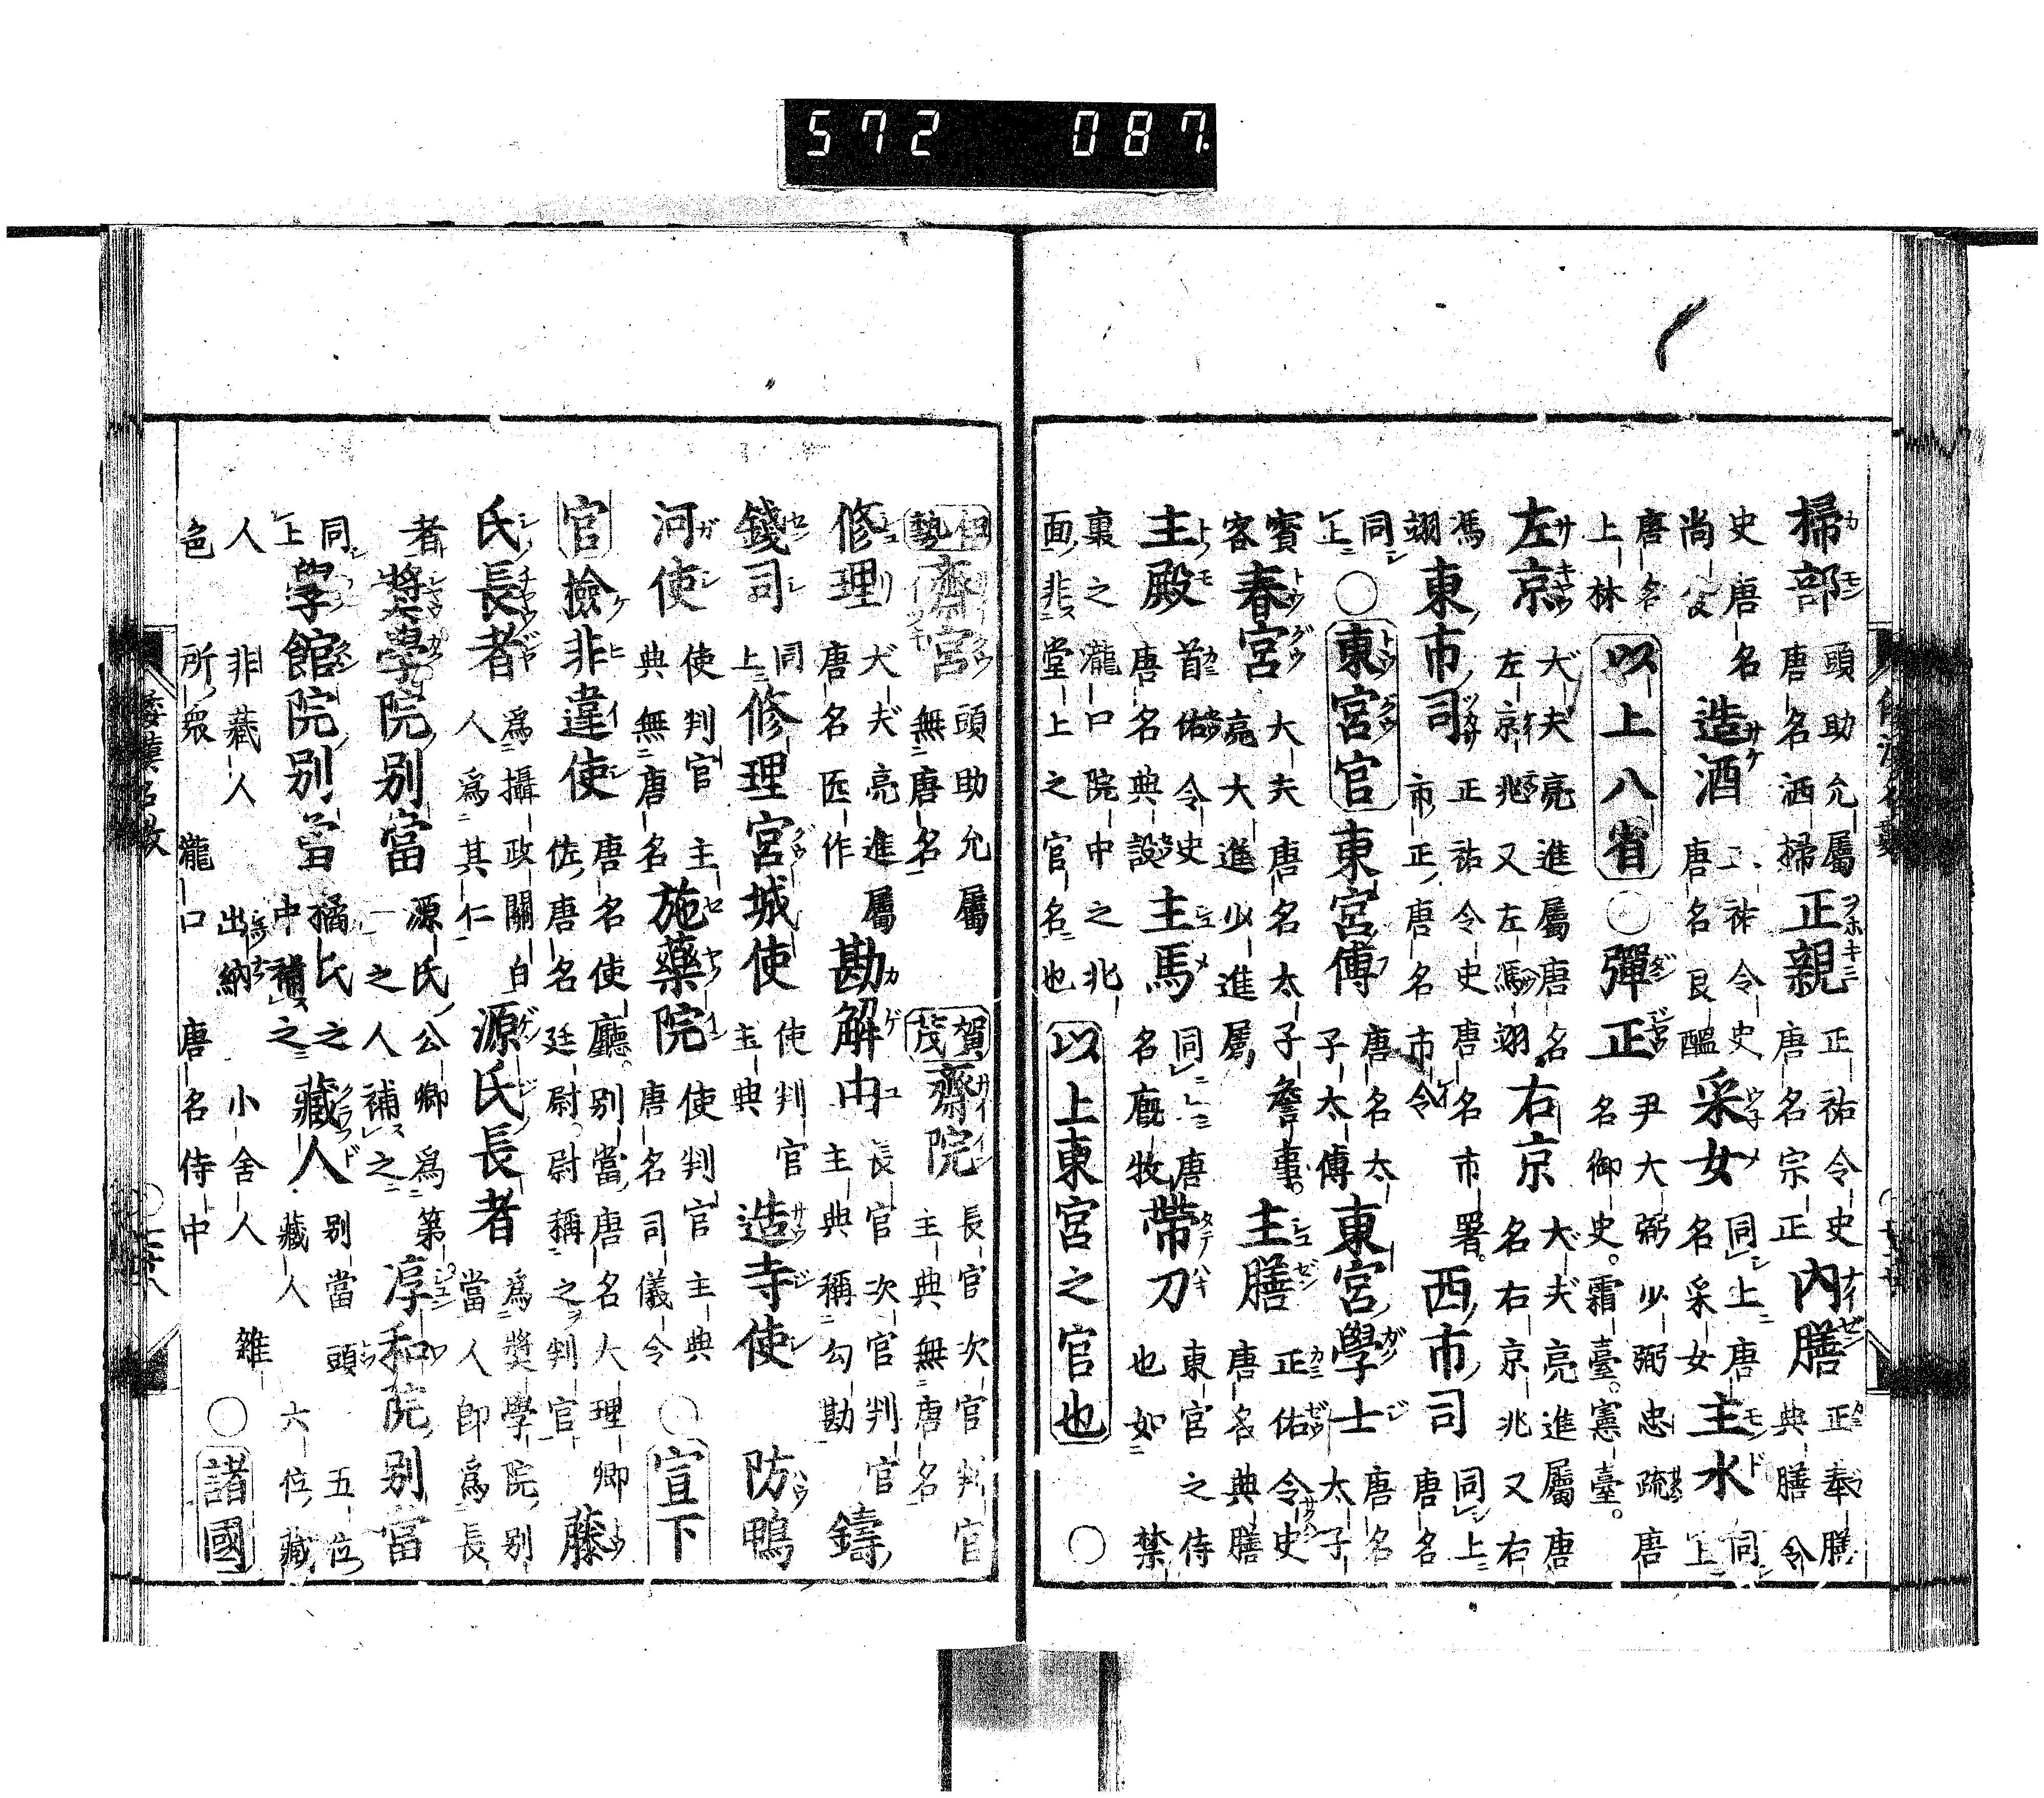 572 087
掃部 頭助允屬唐名洒掃 正親 正祐令史唐名宗正 內膳 正奉膳典膳令
史唐名尚食 造酒 正祐令史唐名良醞 采女 同上唐名采女 主水 同上
唐名上林 以上八省 ○ 彈正 尹大弼少弼忠疏唐名御史霜臺憲臺
左京 大夫亮進屬唐名左京兆又左馮翊 右京 大夫亮進屬唐名右京兆又右
馮翊 東市司 正祐令史唐名市署市正唐名市令 西市司 同上唐名
同上 ○ 東宮官 東宮傅 唐名太子太傅 東宮學士 唐名太子
賓客 春宮 大夫亮大進少進屬唐名太子詹事 主膳 正佑令史唐名典膳
主殿 首佑令史唐名典設 主馬 同上唐名廐牧 帶刀 東宮之侍也如禁
裏之瀧口院中之北面非堂上之官名也 以上東宮之官也 ○
伊勢 齋宮 頭助允屬無唐名 賀茂 齋院 長官次官判官主典無唐名
修理 大夫亮進屬唐名匠作 勘解由 長官次官判官主典稱勾勘 鑄
錢司 同上 修理宮城使 使判官主典 造寺使 防鴨
河使 使判官主典無唐名 施藥院 使判官主典唐名司儀令 ○ 宣下
官 撿非違使 唐名使廳別當唐名大理卿佐唐名廷尉尉稱之判官 藤
氏長者 爲攝政關白人爲其仁 源氏長者 爲奬學院別當人卽爲長
者 奬學院別當 源氏公卿爲第一之人補之 淳和院別當
同上 學館院別當 橘氏之中補之 藏人 別當頭五位六位藏
人非藏人出納小舍人雜
色所衆瀧口唐名侍中 ○ 諸國